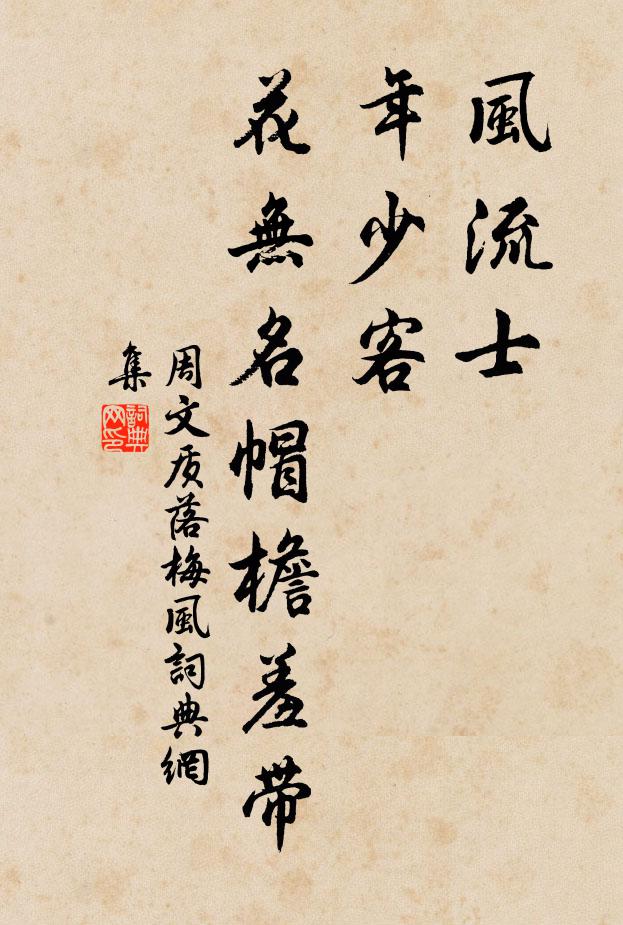 風流士
年少客
花無名帽檐羞带
周文质落梅風詞典網
集
詞典
网印